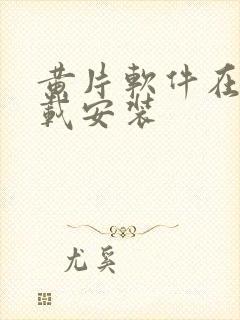 黃片軟件在
載安裝
尤奚